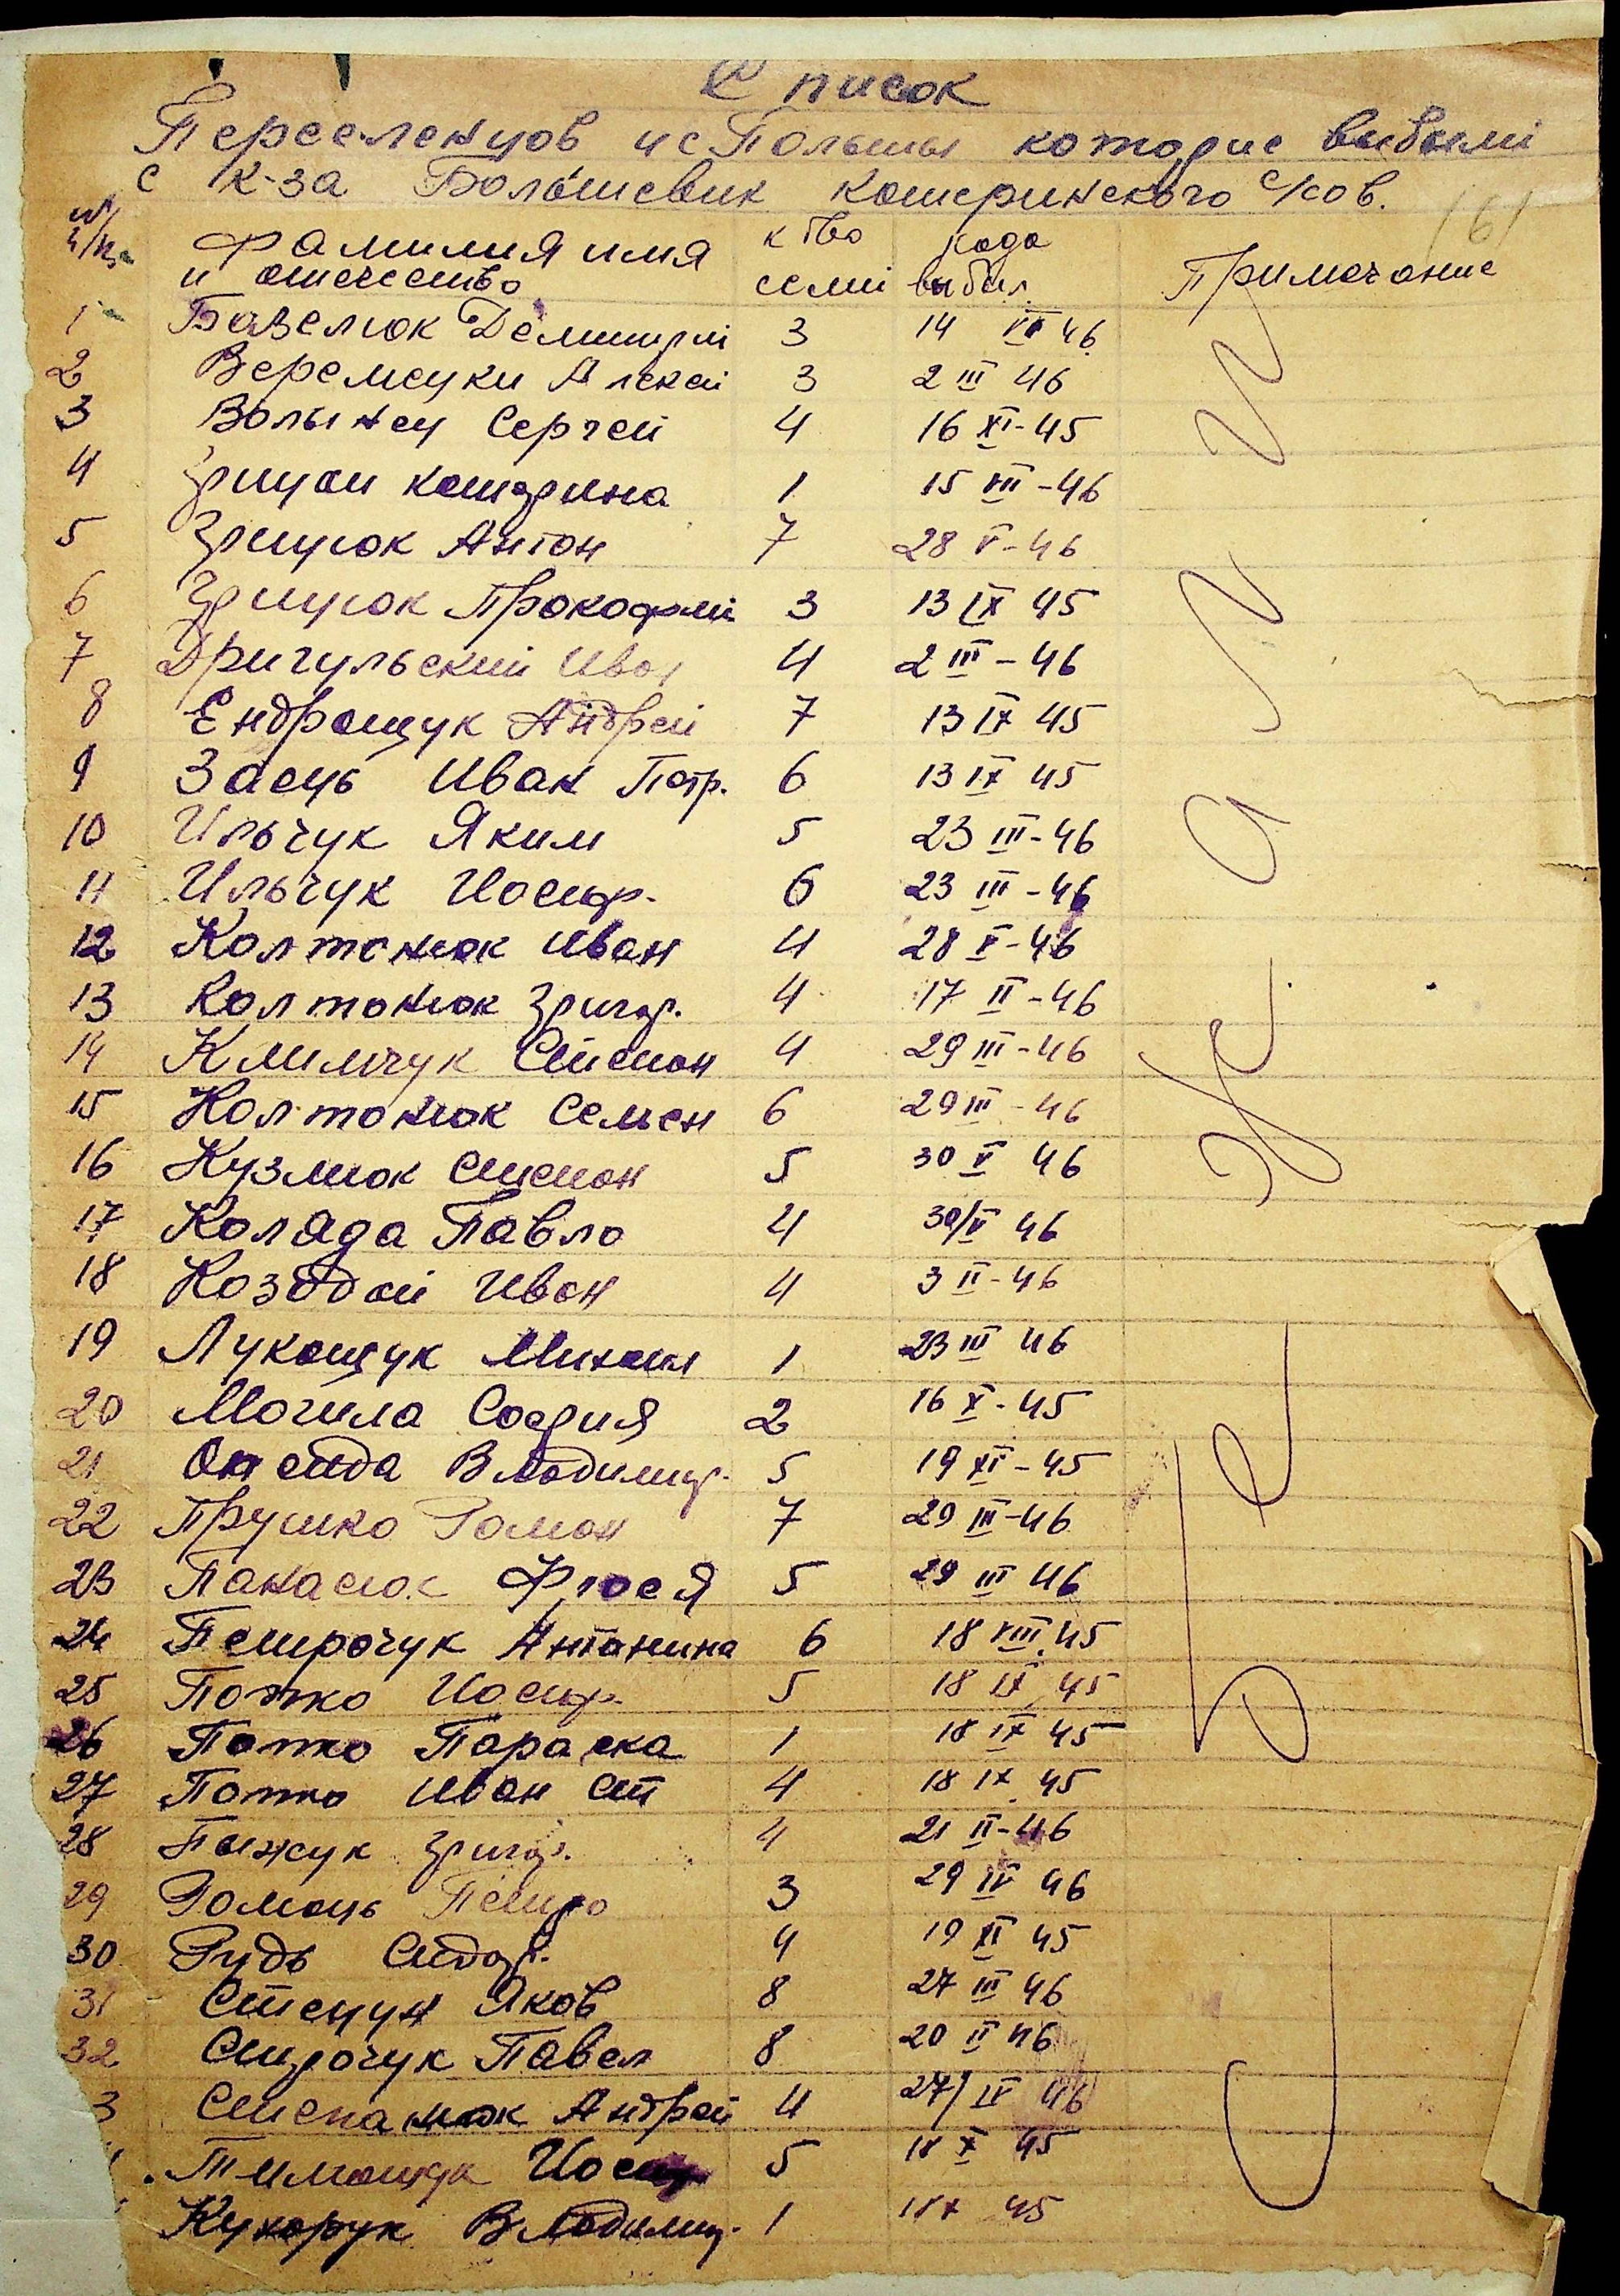 Список
Переселенцов ис Польши которие выбыли
с к-за Большевик Катеринского с/сов.
161
№/ п/п Фамилия имя и отечество к тво семи када выбыл Примечание
1 Базелюк Демитрий 3 14 VII 46
2 Веремчуки Алексей 3 2 III 46
3 Волынец Сергей 4 16 XI-45
4 Грицай Катерина 1 15 VII-46
5 Грицюк Антон 7 28 V-46
6 Грицюк Прокофий 3 13 IX 45
7 Дригульский Иван 4 2 III-46
8 Ендрощук Андрей 7 13 IX 45
9 Заець Иван Петр. 6 13 IX 45
10 Ильчук Яким 5 23 III-46
11 Ильчук Иосиф. 6 23 III-46
12 Колтонюк Иван 4 28 V-46
13 Колтонюк Григор. 4 17 II-46
14 Климчук Степан 4 29 III-46
15 Колтонюк Семен 6 29 III-46
16 Кузмюк Степан 5 30 V 46
17 Коляда Павло 4 30/V 46
18 Козодой Иван 4 3 II-46
19 Лукащук Михаил 1 23 III 46
20 Могила София 2 16 X-45
21 Онейда Владимир. 5 19 XI-45
22 Прушко Роман 7 29 III-46
23 Панасюк Фрося 5 29 III 46
24 Петрочук Антанина 6 18 VIII 45
25 Потко Иосиф. 5 18 IX 45
26 Потко Параска 1 18 IX 45
27 Потко Иван Ст 4 18 IX 45
28 Пыжук Григор. 4 21 II-46
29 Романь Петро 3 29 IV 46
30 Рудь Сидор. 4 19 XI 45
31 Стецун Яков 8 27 III 46
32 Сидрочук Павел 8 20 II 46
3 Степанюк Андрей 4 27/IV 46
Тимощук Иосиф 5 18 X 45
Кухорук Владимир. 1 18 X 45